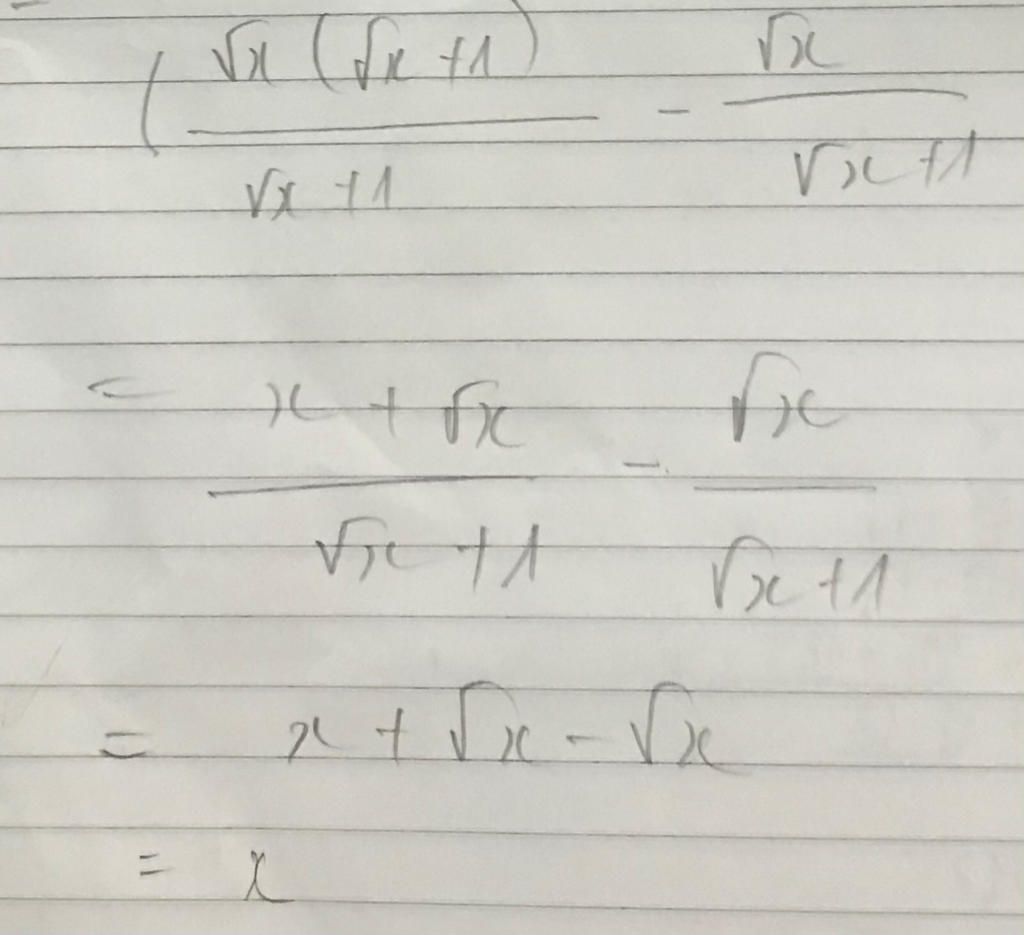 ( √x (√x +1) / √x +1 - √x / √x +1
= x + √x / √x +1 - √x / √x +1
= x + √x - √x
= x